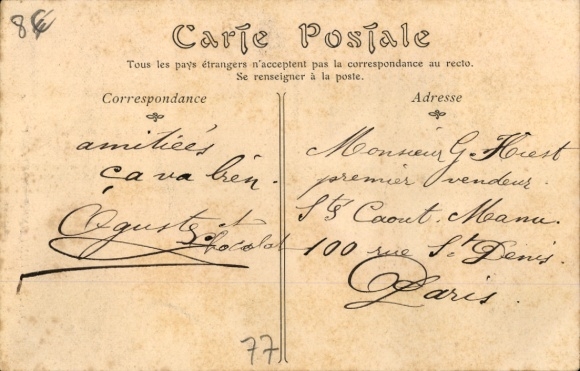 8€
Carte Postale
Tous les pays étrangers n'acceptent pas la correspondance au recto.
Se renseigner à la poste.
Correspondance
amitiéés
ça va bien.
Oguste et
Chocolat
Adresse
Monsieur G. Hiest
premier vendeur
Sté Caout. Manu.
100 rue St Denis.
Paris.
77